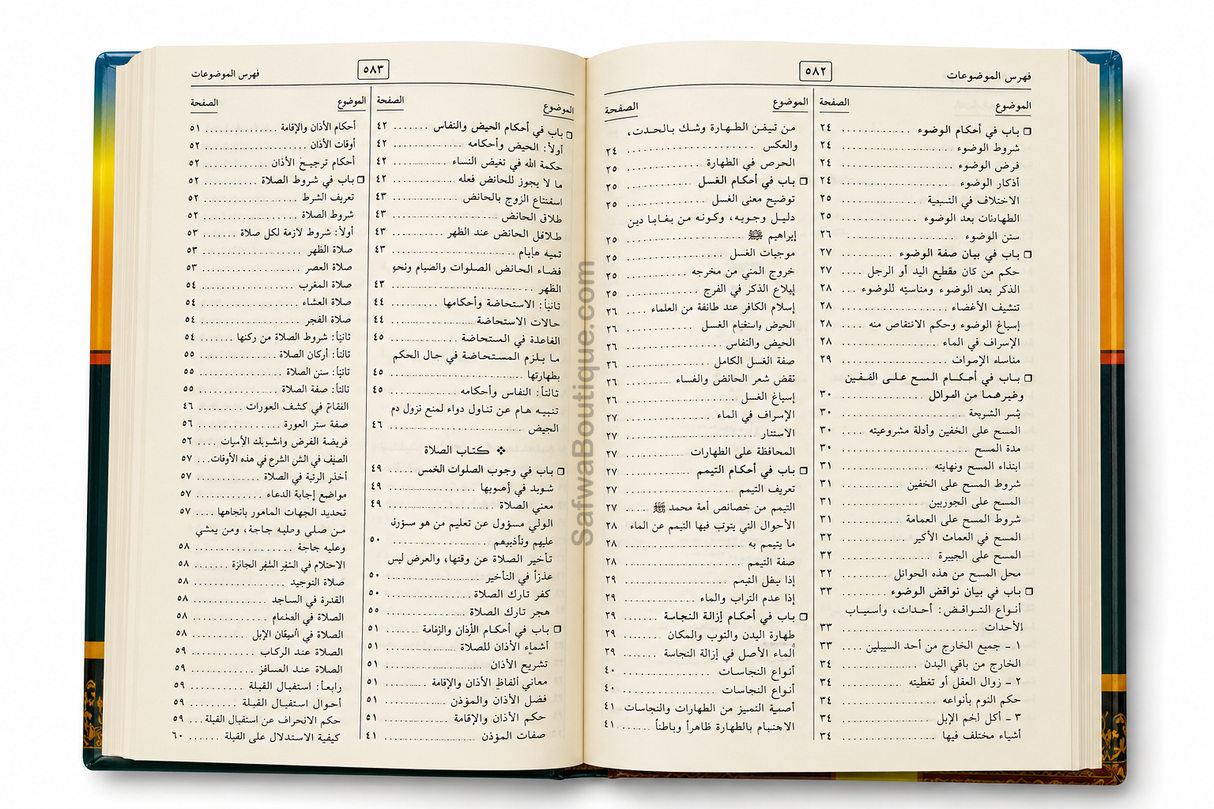 فهرس الموضوعات
٥٨٢
الموضوع
الصفحة
باب في أحكام الوضوء ٢٤
شروط الوضوء ٢٤
فرض الوضوء ٢٤
أذكار الوضوء ٢٤
الاختلاف في التسمية ٢٥
الطهارتات بعد الوضوء ٢٥
سنن الوضوء ٢٦
باب في بيان صفة الوضوء ٢٧
حكم من كان مقطع اليد أو الرجل ٢٧
الذكر بعد الوضوء ومناسبته للوضوء ٢٨
تنشيف الأعضاء ٢٨
إسباغ الوضوء وحكم الانتقاص منه ٢٨
الإسراف في الماء ٢٨
٢٩
باب في أحكام المسح على
وغيرهما من ٣٠
٣٠
المسح على الخفين وأدلة مشروعيته ٣٠
مدة المسح ٣٠
ابتداء المسح ونهايته ٣١
شروط المسح على الخفين ٣١
المسح على الجوربين ٣١
شروط المسح على العمامة ٣١
المسح في الأكبر ٣٢
المسح على الجبيرة ٣٢
محل المسح من هذه الحوائل ٣٢
باب في بيان نواقض الوضوء ٣٣
أنواع النواقض: أحداث، وأسباب
الأحداث ٣٣
١ - جميع الخارج من أحد السبيلين ٣٣
الخارج من باقي البدن ٣٤
٢ - زوال العقل أو تغطيته ٣٤
حكم النوم بأنواعه ٣٤
٣ - أكل لحم الإبل ٣٤
أشياء مختلف فيها ٣٤
الموضوع
الصفحة
من تيقن الطهارة وشك بالحدث،
والعكس ٢٤
الحرص في الطهارة ٢٥
باب في أحكام الغسل ٢٥
توضيح معنى الغسل ٢٥
دليل وجوبه، وكونه من بقايا دين
إبراهيم ﷺ ٢٥
موجبات الغسل ٢٥
خروج المني من مخرجه ٢٥
إيلاع الذكر في الفرج ٢٥
إسلام الكافر عند طائفة من العلماء ٢٦
الحيض الغسل ٢٦
الحيض والنفاس ٢٦
صفة الغسل الكامل ٢٦
نقض شعر الحائض ٢٦
إسباغ الغسل ٢٦
الإسراف في الماء ٢٧
الاستتار ٢٧
المحافظة على الطهارات ٢٧
باب في أحكام التيمم ٢٧
تعريف التيمم ٢٧
التيمم من خصائص أمة محمد ﷺ ٢٧
الأحوال التي يتوب فيها التيمم عن الماء ٢٨
ما يتيمم به ٢٨
صفة التيمم ٢٨
إذا التيمم ٢٩
إذا عدم التراب والماء ٢٩
باب في أحكام إزالة النجاسة ٢٩
طهارة البدن والثوب والمكان ٢٩
الماء الأصل في إزالة النجاسة ٢٩
أنواع النجاسات ٤٠
أنواع النجاسات ٤٠
التميز من الطهارات والنجاسات ٤١
بالطهارة ظاهراً وباطناً ٤١
٥٨٣
فهرس الموضوعات
الموضوع
الصفحة
باب في أحكام الحيض والنفاس ٤٢
أولاً: الحيض وأحكامه ٤٢
حكمة الله في تغيض النساء ٤٢
ما لا يجوز للحائض فعله ٤٢
استمتاع الزوج بالحائض ٤٣
طلاق الحائض ٤٣
الحائض عند الظهر ٤٣
٤٣
قضاء الحائض الصلوات والصيام ونحو
الظهر ٤٣
ثانياً: الاستحاضة وأحكامها ٤٤
حالات الاستحاضة ٤٤
القاعدة في المستحاضة ٤٥
ما يلزم المستحاضة في حال الحكم
بطهارتها ٤٥
ثالثاً: النفاس وأحكامه ٤٥
تنبيه هام عن تناول دواء لمنع نزول دم
الحيض ٤٦
❖ كتاب الصلاة
باب في وجوب الصلوات الخمس ٤٩
٤٩
معني الصلاة ٤٩
الولي مسؤول عن تعليم من هو
عليهم وتأديبهم ٥٠
تأخير الصلاة عن وقتها، والعرض ليس
عذراً في التأخير ٥٠
كفر تارك الصلاة ٥٠
هجر تارك الصلاة ٥٥
باب في أحكام الأذان ٥١
أشماء الأذان للصلاة ٥١
تشريح الأذان ٥١
معاني ألفاظ الأذان والإقامة ٥١
فضل الأذان والمؤذن ٥١
حكم الأذان والإقامة ٥١
صفات المؤذن ٤١
الموضوع
الصفحة
أحكام الأذان والإقامة ٥١
أوقات الأذان ٥٢
أحكام ترجيح الأذان ٥٢
باب في شروط الصلاة ٥٢
تعريف الشرط ٥٢
شروط الصلاة ٥٢
أولاً: شروط لازمة لكل صلاة ٥٣
صلاة الظهر ٥٣
صلاة العصر ٥٣
صلاة المغرب ٥٤
صلاة العشاء ٥٤
صلاة الفجر ٥٤
ثانياً: شروط الصلاة من ركنها ٥٤
ثالثاً: أركان الصلاة ٥٥
ثانياً: سنن الصلاة ٥٥
ثالثاً: صفة الصلاة ٥٥
في كشف العورات ٤٦
صفة ستر العورة ٥٦
فريضة الفرض ٥٦
في هذه الأوقات ٥٧
الرتبة في الصلاة ٥٧
مواضع إجابة الدعاء ٥٧
تحديد الجهات المأمور باتجاهها ٥٧
من صلى وعليه جاجة، ومن يمشي
وعليه جاجة ٥٨
الاحتلام في الجائزة ٥٨
صلاة التوحيد ٥٨
القدرة في الساجد ٥٨
الصلاة في ٥٨
الصلاة في الإبل ٥٨
الصلاة عند الركاب ٥٩
الصلاة عند المسافر ٥٩
رابعاً: استقبال القبلة ٥٩
أحوال استقبال القبلة ٥٩
حكم الانحراف عن استقبال القبلة ٥٩
كيفية الاستدلال على القبلة ٦٠
SafwaBoutique.com